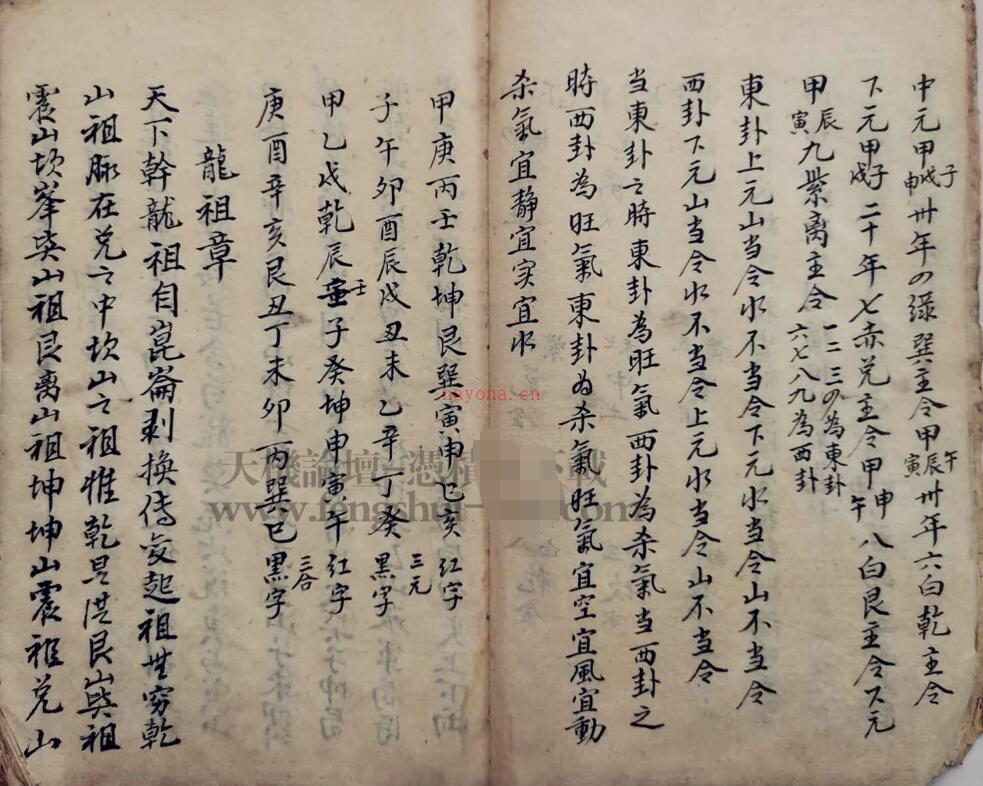 中元甲子戌申卅年四绿巽主令甲午辰寅卅年六白乾主令
下元甲子戌二十年七赤兑主令甲申午八白艮主令下元
甲辰寅九紫离主令 一二三四為東卦 六七八九為西卦
東卦上元山当令水不当令下元水当令山不当令
西卦下元山当令水不当令上元水当令山不当令
当東卦之時東卦為旺氣西卦為杀氣当西卦之
時西卦為旺氣東卦为杀氣旺氣宜空宜風宜動
杀氣宜静宜实宜水
甲庚丙壬乾坤艮巽寅申巳亥红字
子午卯酉辰戌丑未乙辛丁癸黑字 三元
甲乙戌乾辰壬子癸坤申寅午红字
庚酉辛亥艮丑丁未卯丙巽巳黑字 三合
龍祖章
天下幹龍祖自崑崙剥換傳变起祖無穷乾
山祖脉在兑之中坎山之祖惟乾艮山巽祖
震山坎峯巽山祖艮离山祖坤坤山震祖兑山
天機論壇 憑積 下載
www.fengshui-
nayona.cn